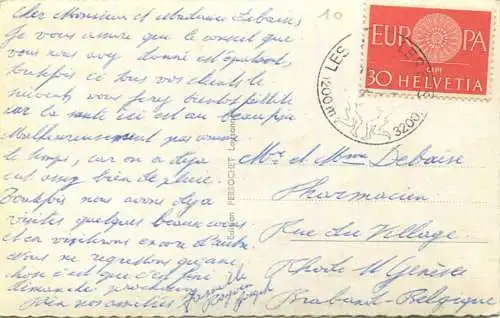 Cher Monsieur et Madame Debaise,
Je vous assure que le conseil que
vous nous avez donné est épatant,
toutefois si tous vos clients le
suivent vous ferez bientôt faillite
car la route ici est au beau fixe
Malheureusement pas comme
le temps, car on a déjà
eut assez bien de pluie.
Toutefois nous avons déjà
visités quelques beaux coins
et on visiterons encore d'autres.
Nous ne regrettons qu'une
chose c'est que c'est fini
dimanche prochain.
Bien nos amitiés
10
EUROPA
CEPT
30 HELVETIA
LES
1200m
3200m
Edition PERROCHET
Mr. et Mme Debaise
Pharmacien
Rue du Village
Rhode St Genèse
Brabant-Belgique